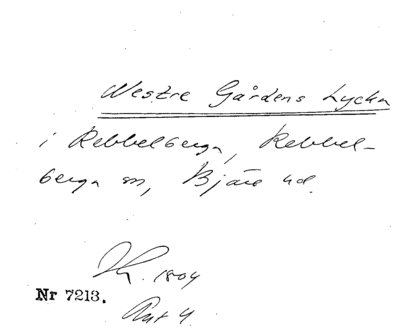 Westre Gårdens Lycka
i Rebbelberga, Rebbel-
berga sn, Bjäre hd.
1804
Nr 7213.
Akt 4